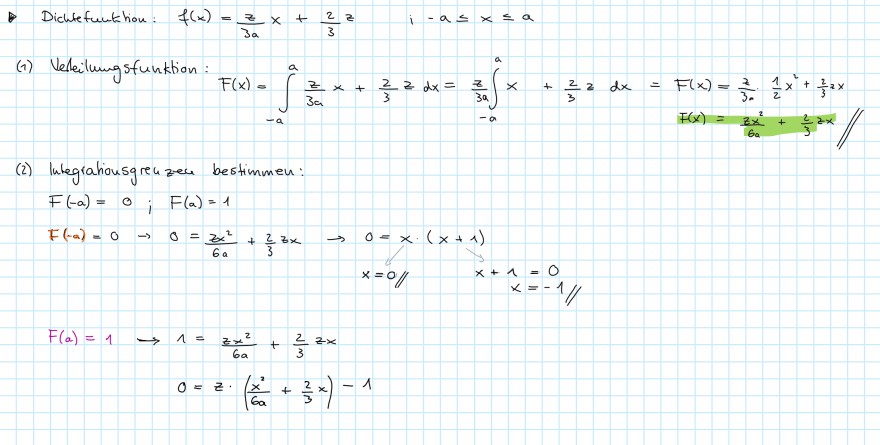 Dichtefunktion: f(x) = z/3a x + 2/3 z ; -a ≤ x ≤ a
(1) Verteilungsfunktion: F(x) = ∫_{-a}^{a} z/3a x + 2/3 z dx = z/3a ∫_{-a}^{a} x + 2/3 z dx = F(x) = z/3a · 1/2 x² + 2/3 zx
F(x) = zx²/6a + 2/3 zx
(2) Integrationsgrenzen bestimmen:
F(-a) = 0 ; F(a) = 1
F(-a) = 0 → 0 = zx²/6a + 2/3 zx → 0 = x · (x + 1)
x = 0 x + 1 = 0
x = -1
F(a) = 1 → 1 = zx²/6a + 2/3 zx
0 = z · (x²/6a + 2/3 x) - 1